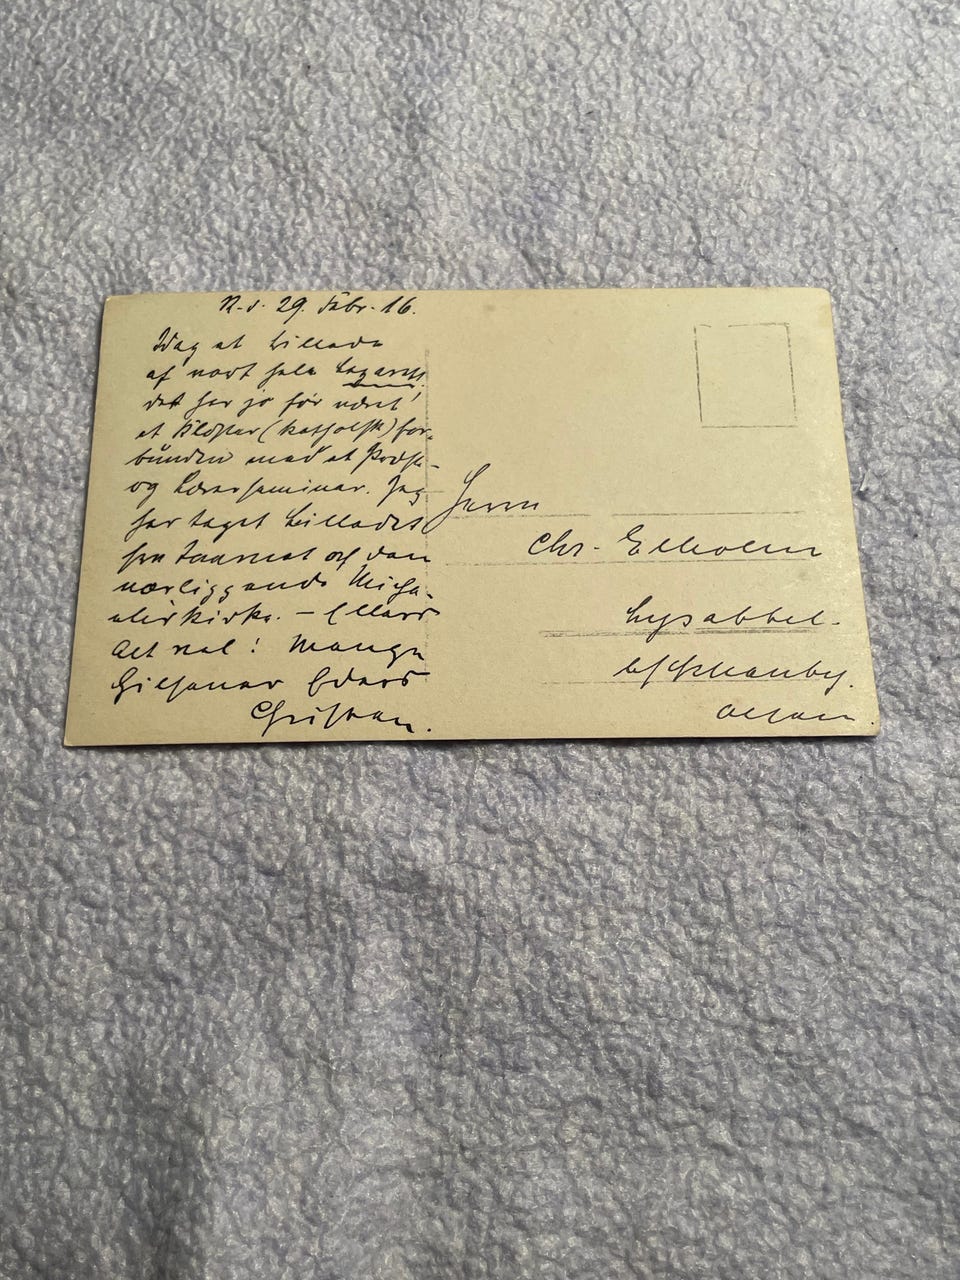 N. d. 29. Febr. 16.
Idag et billede
af vort hele Lazarett.
det har jo før været
et Kloster (katholsk) for-
bunden med et Præste-
og Lærerseminar. Jeg
har taget billedet
fra Taarnet af den
nærliggende Micha-
eliskirke. - Ellers
Alt vel! Mange
Hilsener Eders
Christian.
Herrn
Chr.
Lysabbel.
Alsen